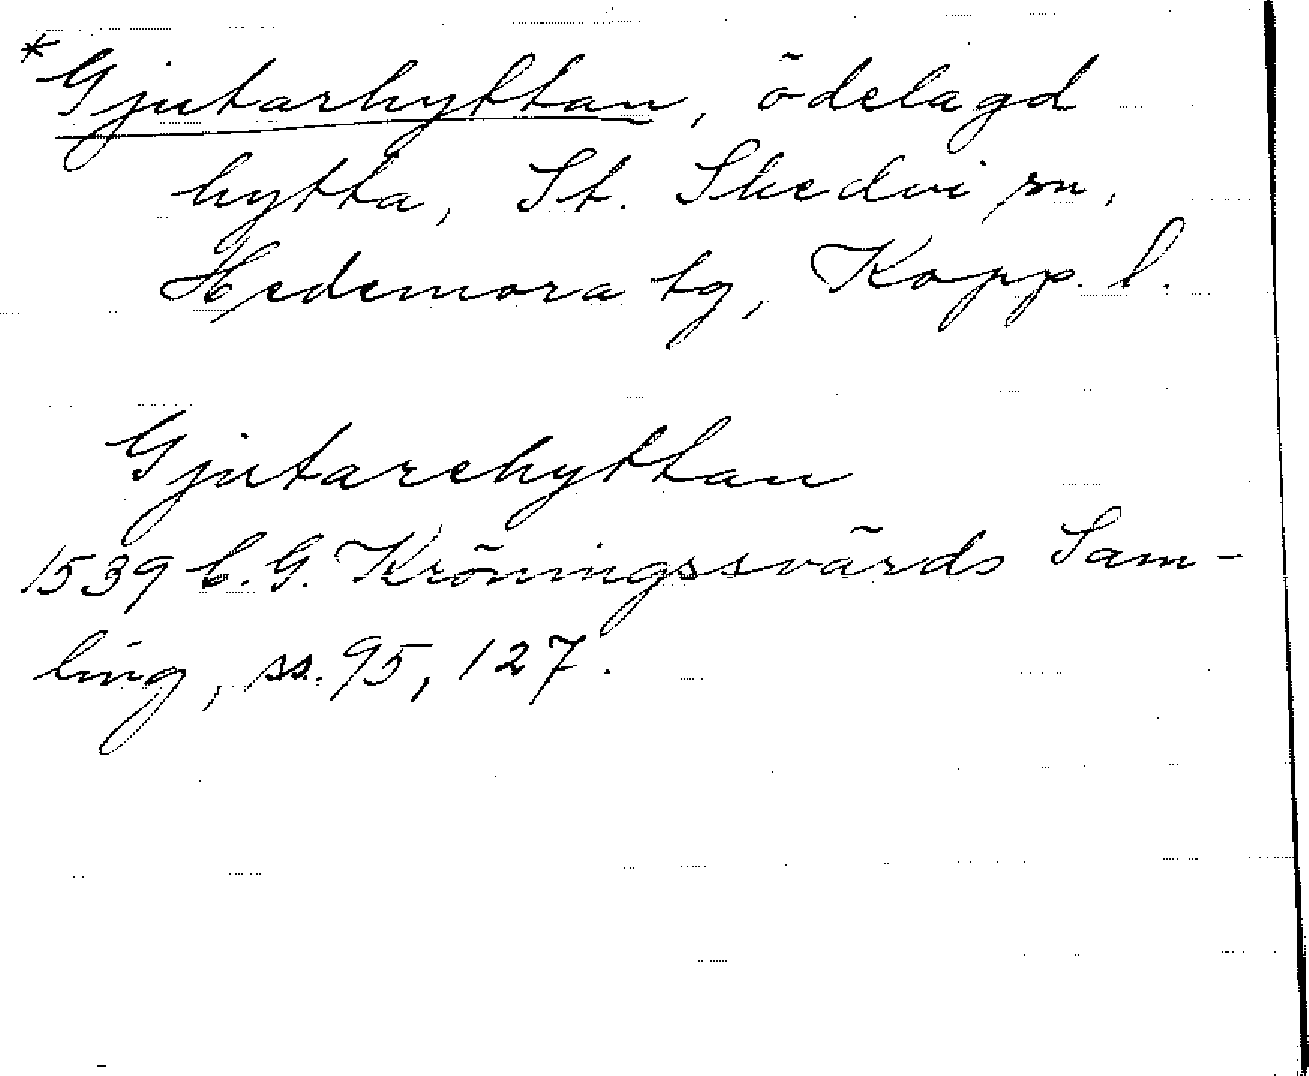 *Gjutarhyttan, ödelagd
hytta, St. Skedvi sn,
Hedemora tg, Kopp. l.
Gjutarehyttan
1539 C. G. Kröningssvärds Sam-
ling, ss. 95, 127.